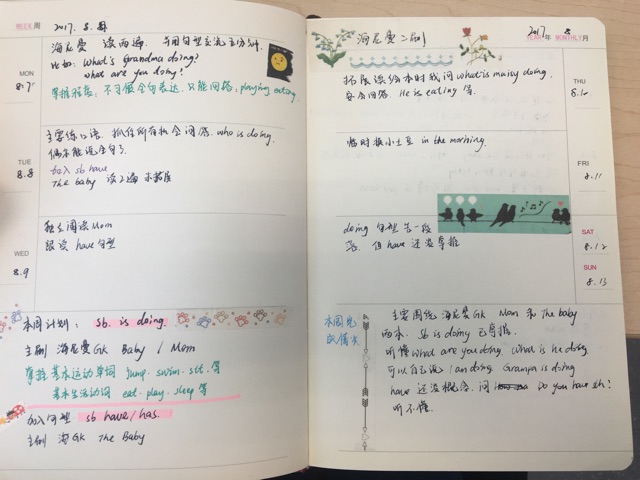 WEEK 周 2017. 8.
海尼曼 读两遍. 并用句型交流互动.
比如: What's Grandma doing?
what are you doing?
MON
8.7
掌握程度: 不习惯全句表达. 只能回答: playing eating.
主要练口语. 抓住所有机会问答. who is doing.
偶尔能说全句了.
TUE
8.8
加入 sb have
The baby 读2遍
独立阅读 Mom
跟读 have 句型
WED
8.9
本周计划: sb. is doing.
主刷 海尼曼GK Baby / Mom
掌握基本运动单词 jump. swim. sit. 等
基本生活动词 eat. play. sleep 等
加入句型 sb have/has.
主刷 海GK The Baby
海尼曼二刷
2017 8
YEAR 年 MONTHLY 月
拓展读绘本时我问 what is maisy doing.
会回答. He is eating 等.
THU
8.10
临时换小土豆 in the morning.
FRI
8.11
doing 句型告一段
落. 但 have 还没掌握
SAT
8.12
SUN
8.13
本周完
成情况
主要围绕 海尼曼GK Mom 和 The baby
两本. Sb is doing 已掌握.
听懂 What are you doing. What is he doing
可以自己说 I am doing. Granpa is doing
have 还没概念. 问 Do you have sth?
听不懂.